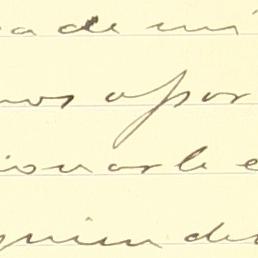 a de mi
nos a por
ionarle e
quien de